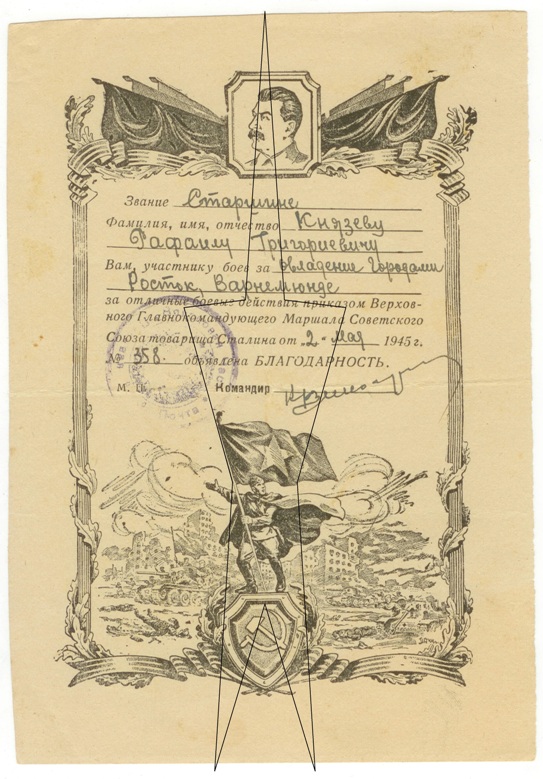 Звание Старшине
Фамилия, имя, отчество Князеву
Рафаилу Григориевичу
Вам, участнику боев за овладение городами
Росток, Варнемюнде
за отличные боевые действия приказом Верхов-
ного Главнокомандующего Маршала Советского
Союза товарища Сталина от 2. мая 1945 г.
№ 358. объявлена БЛАГОДАРНОСТЬ.
М. П. Командир